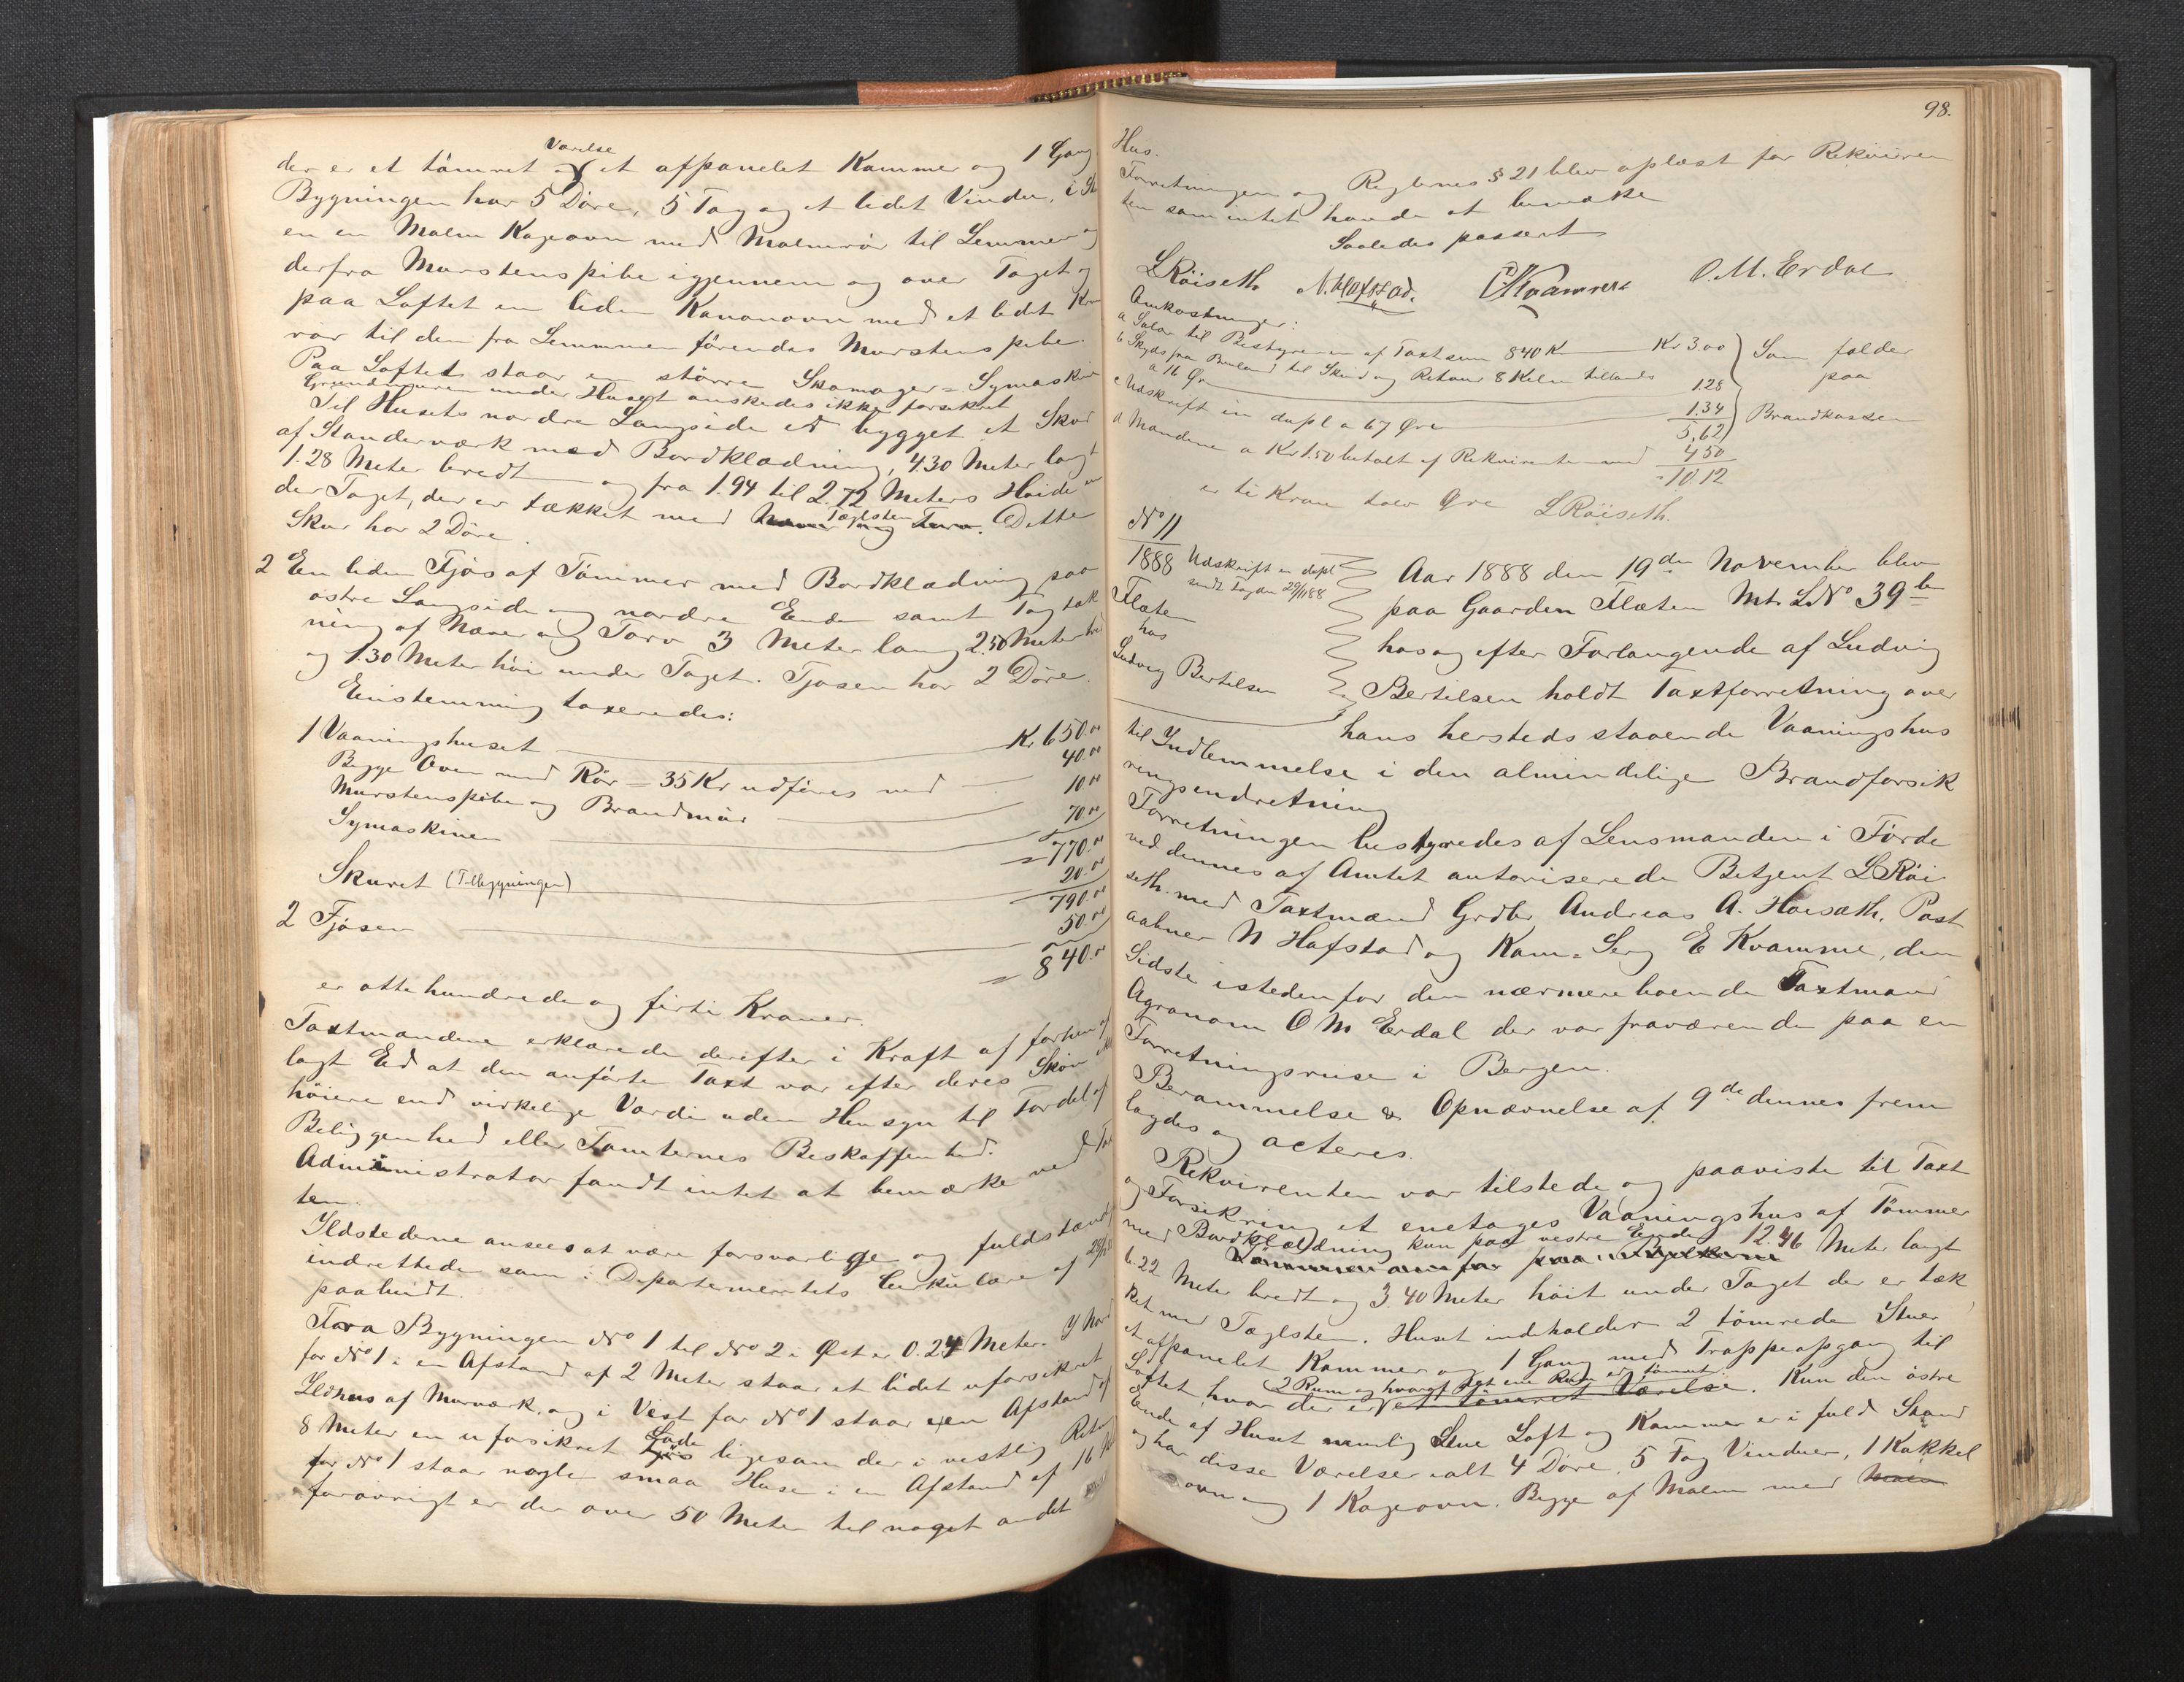 der er et tömret Værelse et afpanelet Kammer og 1 Gang
Bygningen har 5 Döre, 5 Fag og et lidet Vindu, i
en en Malm Kogeovn med Malmrör til Lemmen og
derfra Murstenspibe igjennem og over Taget og
paa Loftet en liden Kanonovn med et lidet
rör til den fra Lemmen förendes Murstenspibe.
Paa Loftet staar en större Skomager-Symaskine
Grundmuren under Huset önskedes ikke forsikret
Til Husets nordre Langside er bygget et Skur
af Standerværk med Bordklædning, 4.30 Meter langt
1.28 Meter bredt og fra 1.94 til 2.72 Meters Höide un
der Taget, der er tækket med Tæglsten. Dette
Skur har 2 Döre.
2 En liden Fjös af Tömmer med Bordklædning paa
östre Langside og nordre Ende samt Tagtæk
ning af Næver og Torv 3 Meter lang 2.50 Meter bred
og 1.30 Meter höi under Taget. Fjösen har 2 Döre.
Enistemmig taxeredes:
1 Vaaningshuset Kr 650.00
Begge Ovne med Rör = 35 Kr udföres med 40.00
Murstenspibe og Brandmur 10.00
Symaskinen 70.00
= 770.00
Skuret (Tilbygningen) 20.00
790.00
2 Fjösen 50.00
= 840.00
er otte hundrede og firti Kroner.
Taxtmændene erklærede derefter i Kraft af forhen af
lagt Ed at den anförte Taxt var efter deres Skjön ikke
höiere end virkelige Værdi uden Hensyn til Fordel af
Beliggenhed eller Tomternes Beskaffenhed.
Administrator fandt intet at bemærke ved Tax
ten.
Ildstederne ansees at være forsvarlige og fuldstændig
indrettede som i Departementets Cirkulære af
paabudt.
Fra Bygningen No 1 til No 2 i Öst er 0.24 Meter. I Nord
for No 1 i en Afstand af 2 Meter staar et lidet uforsikret
Ildhus af Murværk, og i Vest for No 1 staar i en Afstand af
8 Meter en uforsikret Lade ligesom der i vestlig Retn
for No 1 staar nogle smaa Huse i en Afstand af 16 M
forövrigt er der over 50 Meter til noget andet
98.
Hus.
Forretningen og Reglernes § 21 blev oplæst for Rekviren
ten som intet havde at bemærke
Saaledes passert
LRöiseth N. Hafstad. EKvamme O. M. Erdal
Omkostninger:
a Salær til Bestyreren af Taxtsum 840 Kr Kr 3.00 } Som falder
b Skyds fra Bruland til Skei og Retour 8 Kilm tillands paa
a 16 Øre 1.28
c Udskrift in dupl a 67 Øre 1.34 } Brandkassen
5.62
d Mændene a Kr 1.50 betalt af Rekvirenten med 4.50
= 10.12
er ti Kroner tolv Øre LRöiseth.
No 11
1888 Udskrift in dupl
sendt Fogden 29/11 88
Flaten
hos
Ludvig Bertelsen
Aar 1888 den 19de November blev
paa Gaarden Flaten Mt. L No 39 b
hos og efter Forlangende af Ludvig
Bertilsen holdt Taxtforretning over
hans hersteds staaende Vaaningshus
til Indlemmelse i den almindelige Brandforsik
ringsindretning
Forretningen bestyredes af Lensmanden i Förde
ved dennes af Amtet autoriserede Betjent L Röi
seth. med Taxtmænd Grdbr Andreas A. Horsæth, Post
aabner N Hafstad og Kom-Serg E Kvamme, den
Sidste istedenfor den nærmereboende Taxtmand
Agronom O M Erdal der var fraværende paa en
Forretningsreise i Bergen.
Berammelse & Opnævnelse af 9de dennes frem
lagdes og acteres.
Rekvirenten var tilstede og paaviste til Taxt
og Forsikring et enetages Vaaningshus af Tömmer
med Bordklædning kun paa vestre Ende 12.46 Meter langt
6.22 Meter bredt og 3.40 Meter höit under Taget der er tæk
ket med Tæglsten. Huset indeholder 2 tömrede Stuer
et afpanelet Kammer og 1 Gang med Trappeopgang til
Loftet, hvor der er 2 Rum og hvoraf det ene Rum er tömret
et tömret Værelse. Kun den östre
Ende af Huset nemlig Stue Loft og Kammer er i fuld Stand
og har disse Værelser ialt 4 Döre, 5 Fag Vinduer, 1 Kakkel
ovn og 1 Kogeovn. Begge af Malm med